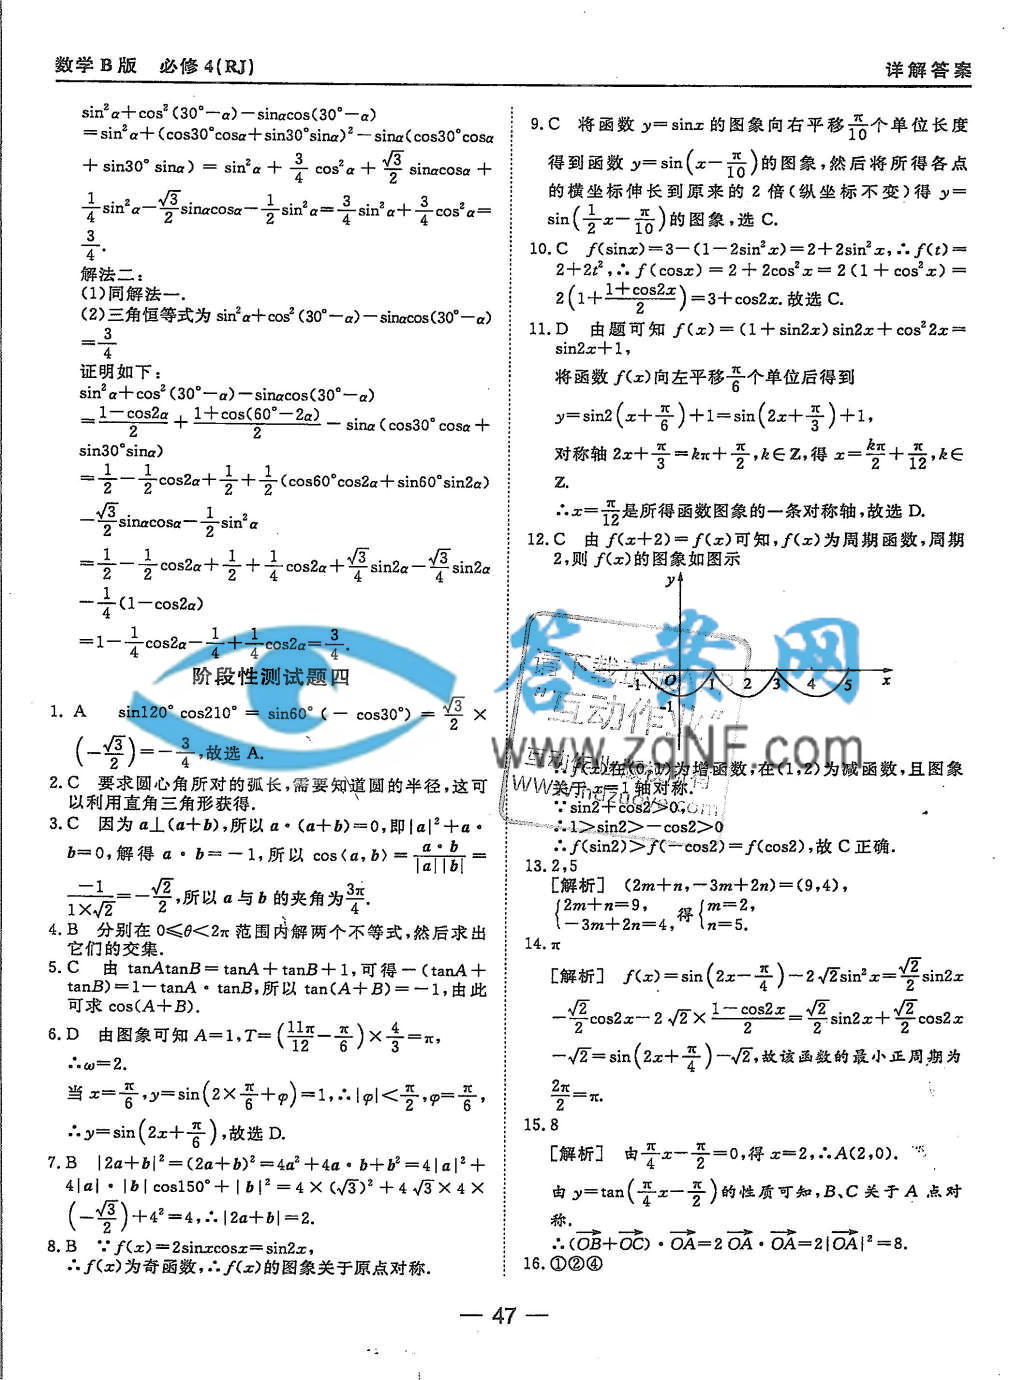 数学B版 必修4(RJ)
详解答案
sin²α+cos²(30°-α)-sinαcos(30°-α)
=sin²α+(cos30°cosα+sin30°sinα)²-sinα(cos30°cosα
+sin30°sinα)=sin²α+3/4cos²α+√3/2sinαcosα+
1/4sin²α-√3/2sinαcosα-1/2sin²α=3/4sin²α+3/4cos²α=
3/4.
解法二:
(1)同解法一.
(2)三角恒等式为 sin²α+cos²(30°-α)-sinαcos(30°-α)
=3/4
证明如下:
sin²α+cos²(30°-α)-sinαcos(30°-α)
=(1-cos2α)/2+(1+cos(60°-2α))/2-sinα(cos30°cosα+
sin30°sinα)
=1/2-1/2cos2α+1/2+1/2(cos60°cos2α+sin60°sin2α)
-√3/2sinαcosα-1/2sin²α
=1/2-1/2cos2α+1/2+1/4cos2α+√3/4sin2α-√3/4sin2α
-1/4(1-cos2α)
=1-1/4cos2α-1/4+1/4cos2α=3/4.
阶段性测试题四
1. A sin120°cos210°=sin60°(-cos30°)=√3/2×
(-√3/2)=-3/4,故选A.
2.C 要求圆心角所对的弧长,需要知道圆的半径,这可
以利用直角三角形获得.
3.C 因为a⊥(a+b),所以a·(a+b)=0,即|a|²+a·
b=0,解得a·b=-1,所以cos⟨a,b⟩=a·b/|a||b|=
-1/(1×√2)=-√2/2,所以a与b的夹角为3π/4.
4.B 分别在0≤θ<2π范围内解两个不等式,然后求出
它们的交集.
5.C 由tanAtanB=tanA+tanB+1,可得-(tanA+
tanB)=1-tanA·tanB,所以tan(A+B)=-1,由此
可求cos(A+B).
6.D 由图象可知A=1,T=(11π/12-π/6)×4/3=π,
∴ω=2.
当x=π/6,y=sin(2×π/6+φ)=1,∴|φ|<π/2,φ=π/6,
∴y=sin(2x+π/6),故选D.
7.B |2a+b|²=(2a+b)²=4a²+4a·b+b²=4|a|²+
4|a|·|b|cos150°+|b|²=4×(√3)²+4√3×4×
(-√3/2)+4²=4,∴|2a+b|=2.
8.B ∵f(x)=2sinxcosx=sin2x,
∴f(x)为奇函数,∴f(x)的图象关于原点对称.
9.C 将函数y=sinx的图象向右平移π/10个单位长度
得到函数y=sin(x-π/10)的图象,然后将所得各点
的横坐标伸长到原来的2倍(纵坐标不变)得y=
sin(1/2x-π/10)的图象,选C.
10.C f(sinx)=3-(1-2sin²x)=2+2sin²x,∴f(t)=
2+2t²,∴f(cosx)=2+2cos²x=2(1+cos²x)=
2(1+(1+cos2x)/2)=3+cos2x.故选C.
11.D 由题可知f(x)=(1+sin2x)sin2x+cos²2x=
sin2x+1,
将函数f(x)向左平移π/6个单位后得到
y=sin2(x+π/6)+1=sin(2x+π/3)+1,
对称轴2x+π/3=kπ+π/2,k∈Z,得x=kπ/2+π/12,k∈
Z.
∴x=π/12是所得函数图象的一条对称轴,故选D.
12.C 由f(x+2)=f(x)可知,f(x)为周期函数,周期
2,则f(x)的图象如图示
y
-1 O 1 2 3 4 5 x
-1
答案网
www.zqNF.com
请下载正版
"互动作业"
∴f(x)在(0,1)为增函数,在(1,2)为减函数,且图象
关于x=1轴对称.
∵sin2+cos2>0,
∴1>sin2>-cos2>0
∴f(sin2)>f(-cos2)=f(cos2),故C正确.
13.2,5
[解析] (2m+n,-3m+2n)=(9,4),
{2m+n=9, -3m+2n=4, 得{m=2, n=5.
14.π
[解析] f(x)=sin(2x-π/4)-2√2sin²x=√2/2sin2x
-√2/2cos2x-2√2×(1-cos2x)/2=√2/2sin2x+√2/2cos2x
-√2=sin(2x+π/4)-√2,故该函数的最小正周期为
2π/2=π.
15.8
[解析] 由π/4x-π/2=0,得x=2,∴A(2,0).
由y=tan(π/4x-π/2)的性质可知,B、C关于A点对
称.
∴(OB+OC)·OA=2OA·OA=2|OA|²=8.
16.①②④
— 47 —